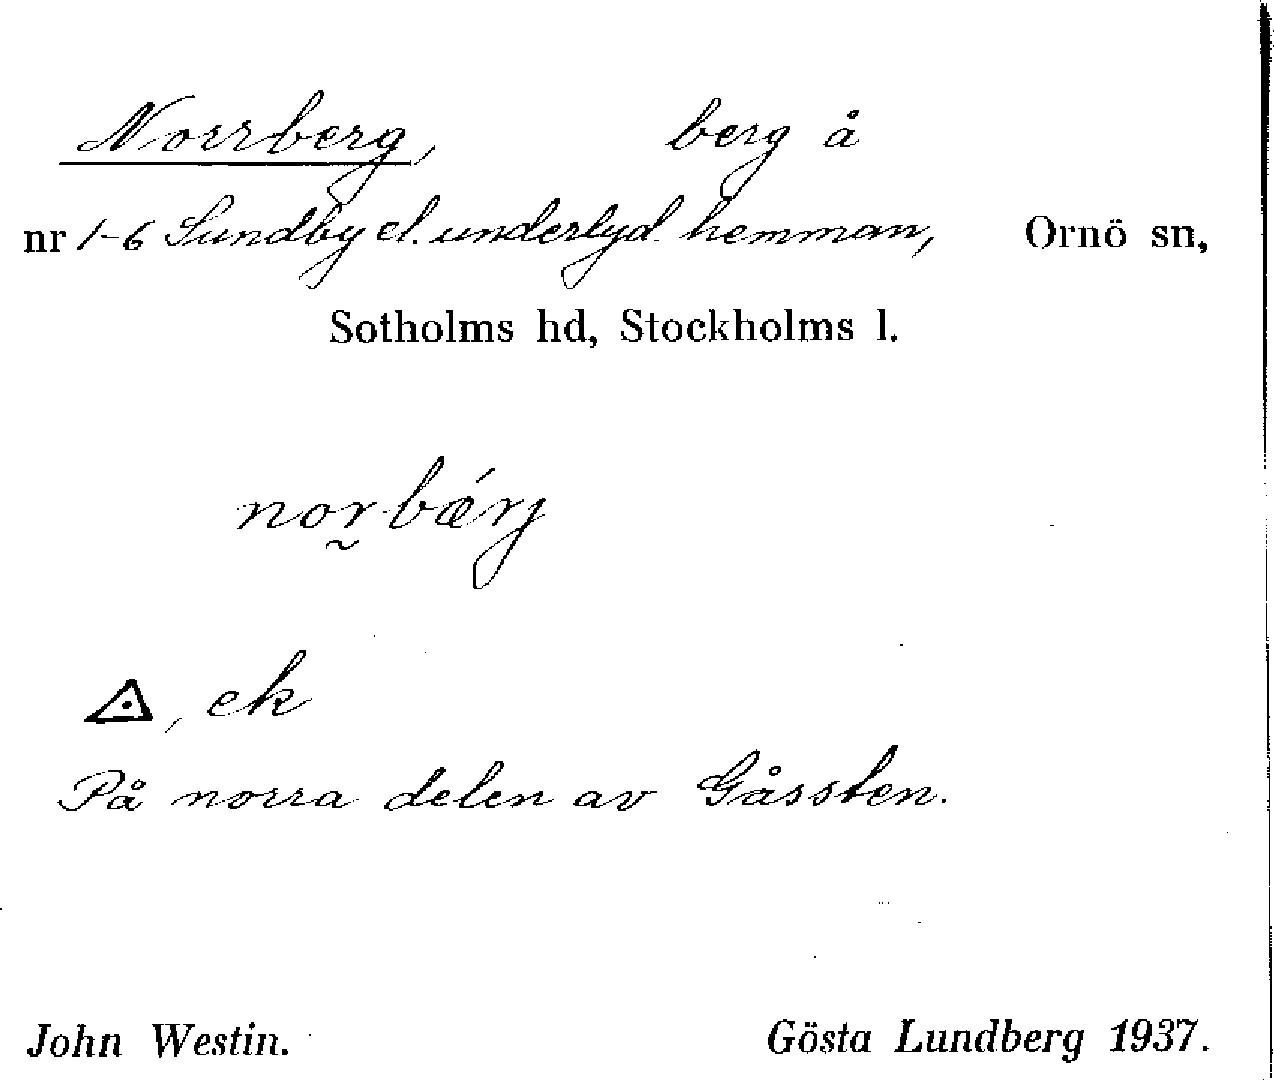 Norrberg, berg å
nr 1-6 Sundby el. underlyd. hemman, Ornö sn,
Sotholms hd, Stockholms l.
nor̰bǽrj
, ek
På norra delen av Gåssten.
John Westin. Gösta Lundberg 1937.